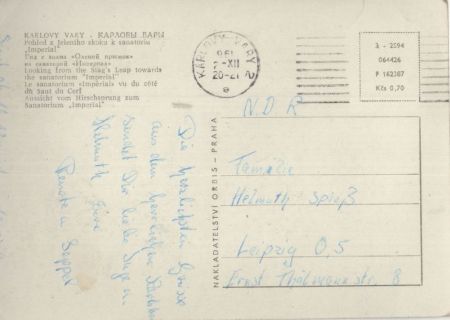 KARLOVY VARY - КАРЛОВЫ ВАРЫ
Pohled z Jeleního skoku k sanatoriu
"Imperial"
Вид с холма «Олений прыжок»
на санаторий «Империал»
Looking from the Stag's Leap towards
the sanatorium "Imperial"
Le sanatorium «Impérial» vu du côté
du Saut du Cerf
Aussicht vom Hirschsprung zum
Sanatorium „Imperial"
KARLOVY VARY 2
-XII
20-21
e
3 - 2594
064426
P 162307
Kčs 0,70
NAKLADATELSTVÍ ORBIS - PRAHA
N.D.R
Familie
Helmuth Spieß
Leipzig 0,5
Ernst Thälmannstr. 8
Die herzlichsten Grüße
aus dem herrlichen
sendet Dir liebe
Helmuth
Renate u. Seppel